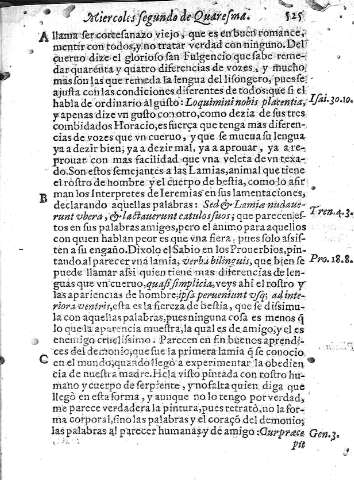 Miercoles segundo de Quaresma. 525
A llama ser cortesanazo viejo, que es en buen romance,
mentir con todos, y no tratar verdad con ninguno. Del
cuervo dize el glorioso san Fulgencio que sabe reme-
dar quarenta y quatro diferencias de vozes, y mucho
mas son las que remeda la lengua del lisongero, pues se
ajusta con las condiciones diferentes de todos: que si el
habla de ordinario al gusto: Loquimini nobis placentia, Isai. 30. 10.
y apenas dize vn gusto con otro, como dezia de sus tres
combidados Horacio, es fuerça que tenga mas diferen-
cias de vozes que vn cuervo, y que se mueua su lengua
ya a dezir bien, ya a dezir mal, ya a aprouar, ya a re-
prouar con mas facilidad que vna veleta de vn texa-
do. Son estos semejantes a las Lamias, animal que tiene
el rostro de hombre y el cuerpo de bestia, como lo afir
man los Interpretes de Ieremias en sus lamentaciones,
B declarando aquellas palabras: Sed & Lamiæ nudaue-
runt vbera, & lactauerunt catulos suos; que parecen es- Tren. 4. 3.
tos en sus palabras amigos, pero el animo para aquellos
con quien hablan peor es que vna fiera, pues solo assis-
ten a su engaño. Dixolo el Sabio en los Prouerbios, pin-
tando al parecer vna lamia, verba bilinguis, que bien se Pro. 18. 8.
puede llamar assi quien tiene mas diferencias de len-
guas que vn cuervo, quasi simplicia, veys ahi el rostro y
las apariencias de hombre: ipsa perueniunt vsq; ad inte-
riora ventris, esta es la fiereza de bestia, que se dissimu-
la con aquellas palabras, pues ninguna cosa es menos q̃
lo que la aparencia muestra, la qual es de amigo, y el es
enemigo cruelissimo. Parecen en fin buenos aprendi-
ces del demonio, que fue la primera lamia q̃ se conocio
C en el mundo, quando llegò a experimentar la obedien
cia de nuestra madre. Hela visto pintada con rostro hu-
mano y cuerpo de serpiente, y no falta quien diga que
llegò en esta forma, y aunque no lo tengo por verdad,
me parece verdadera la pintura, pues retratò no la for-
ma corporal, sino las palabras y el coraçõ del demonio;
las palabras al parecer humanas y de amigo: Cur præce Gen. 3.
pit